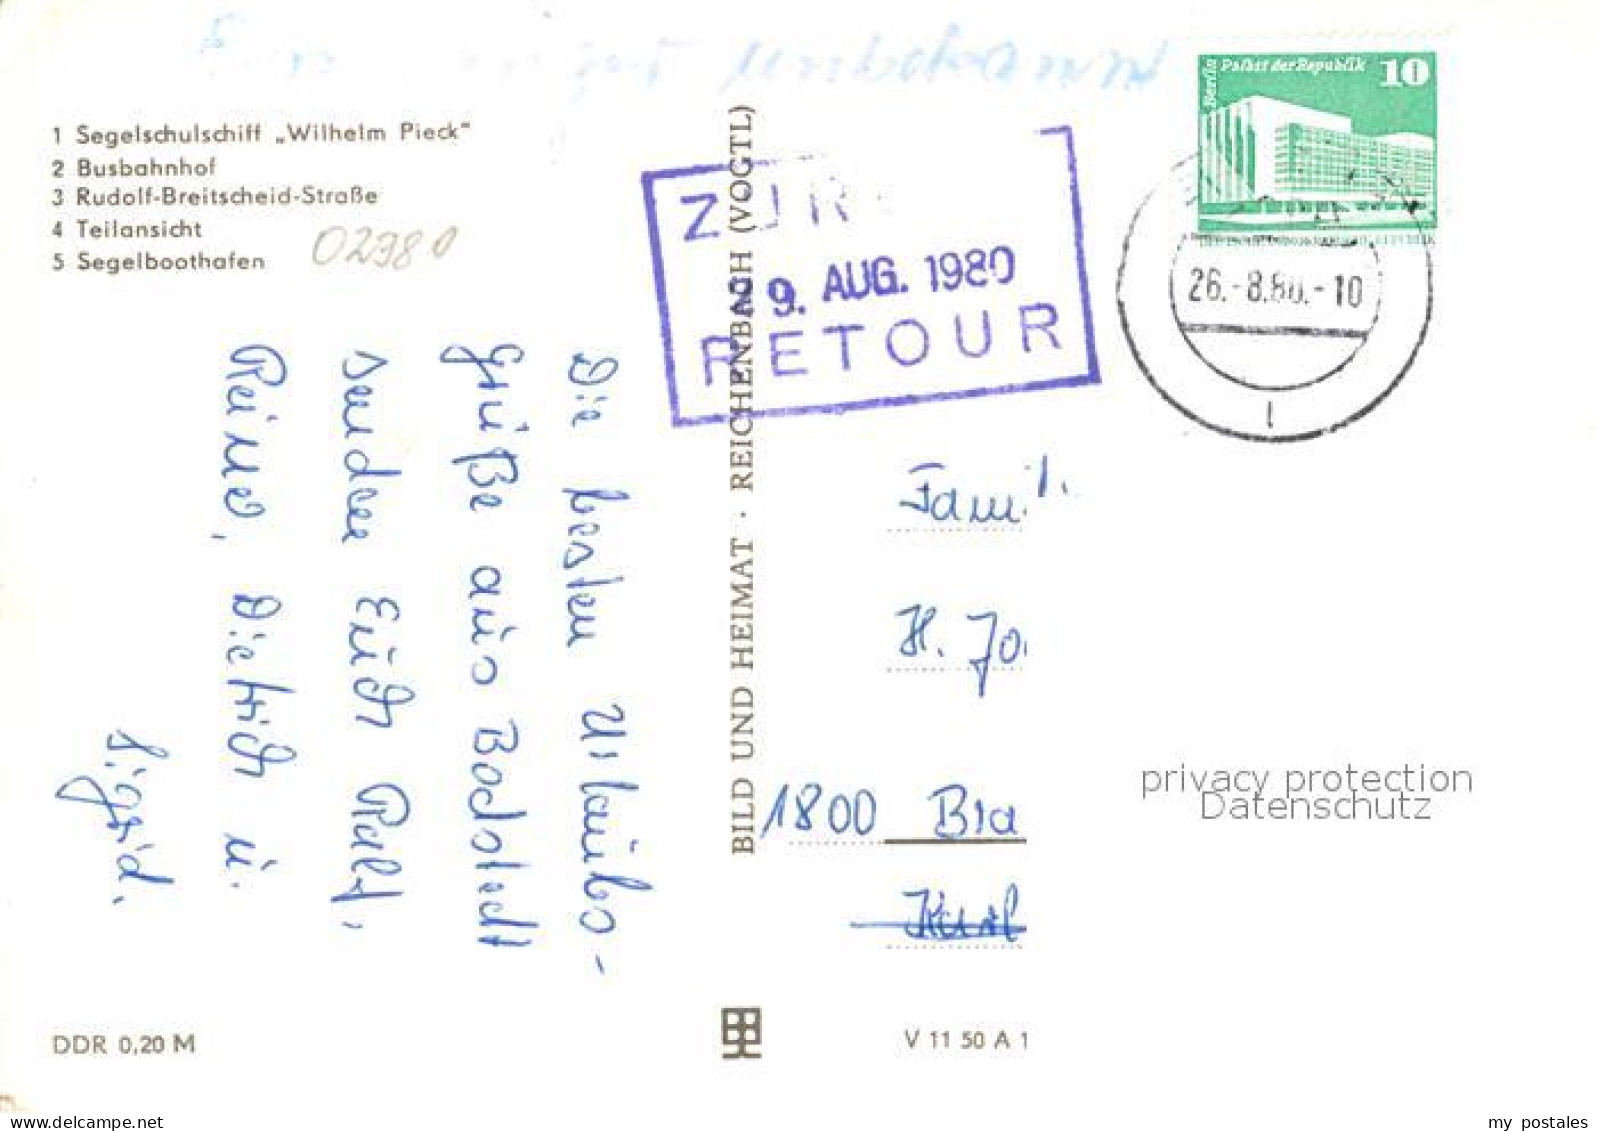 1 Segelschulschiff „Wilhelm Pieck"
2 Busbahnhof
3 Rudolf-Breitscheid-Straße
4 Teilansicht
5 Segelboothafen
02980
Die besten Urlaubs-
grüße aus Bodstedt
senden Euch Ralf,
Reine, Dietrich u.
Sigrid.
DDR 0,20 M
BILD UND HEIMAT · REICHENBACH (VOGTL)
ZUR
9. AUG. 1980
RETOUR
Berlin Palast der Republik 10
26.-8.80.-10
Famil.
H. Jo
1800 Bra
privacy protection
Datenschutz
V 11 50 A 1
www.delcampe.net
my_postales